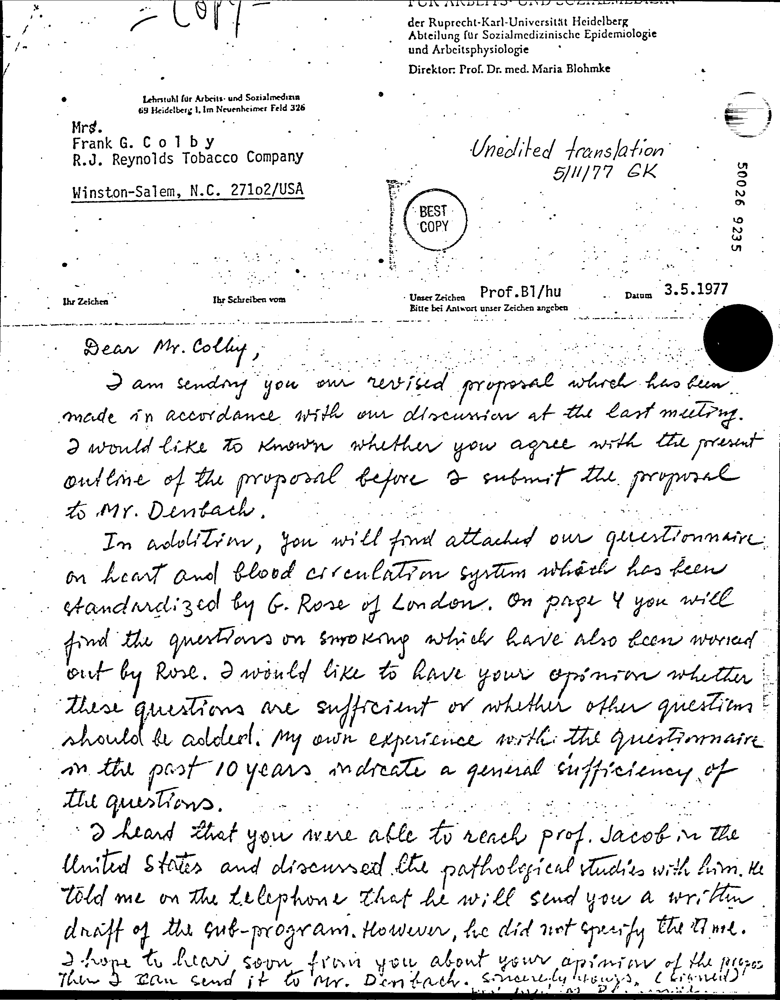 - Copy -
FÜR ARBEITS- UND SOZIALMEDIZIN
der Ruprecht-Karl-Universität Heidelberg
Abteilung für Sozialmedizinische Epidemiologie
und Arbeitsphysiologie
Direktor: Prof. Dr. med. Maria Blohmke
Lehrstuhl für Arbeits- und Sozialmedizin
69 Heidelberg 1, Im Neuenheimer Feld 326
Mrs.
Frank G. C o l b y
R.J. Reynolds Tobacco Company
Winston-Salem, N.C. 271o2/USA
Unedited translation
5/11/77 GK
BEST
COPY
50026 9235
Ihr Zeichen Ihr Schreiben vom Unser Zeichen Prof.Bl/hu Datum 3.5.1977
Bitte bei Antwort unser Zeichen angeben
Dear Mr. Colby,
I am sending you our revised proposal which has been
made in accordance with our discussion at the last meeting.
I would like to known whether you agree with the present
outline of the proposal before I submit the proposal
to Mr. Denbach.
In addition, you will find attached our questionnaire
on heart and blood circulation system which has been
standardized by G. Rose of London. On page 4 you will
find the questions on smoking which have also been worked
out by Rose. I would like to have your opinion whether
these questions are sufficient or whether other questions
should be added. My own experience with the questionnaire
in the past 10 years indicate a general sufficiency of
the questions.
I heard that you were able to reach prof. Jacob in the
United States and discussed the pathological studies with him. He
told me on the telephone that he will send you a written
draft of the sub-program. However, he did not specify the time.
I hope to hear soon from you about your opinion of the propos
Then I can send it to Mr. Denbach. Sincerely yours, (signed)